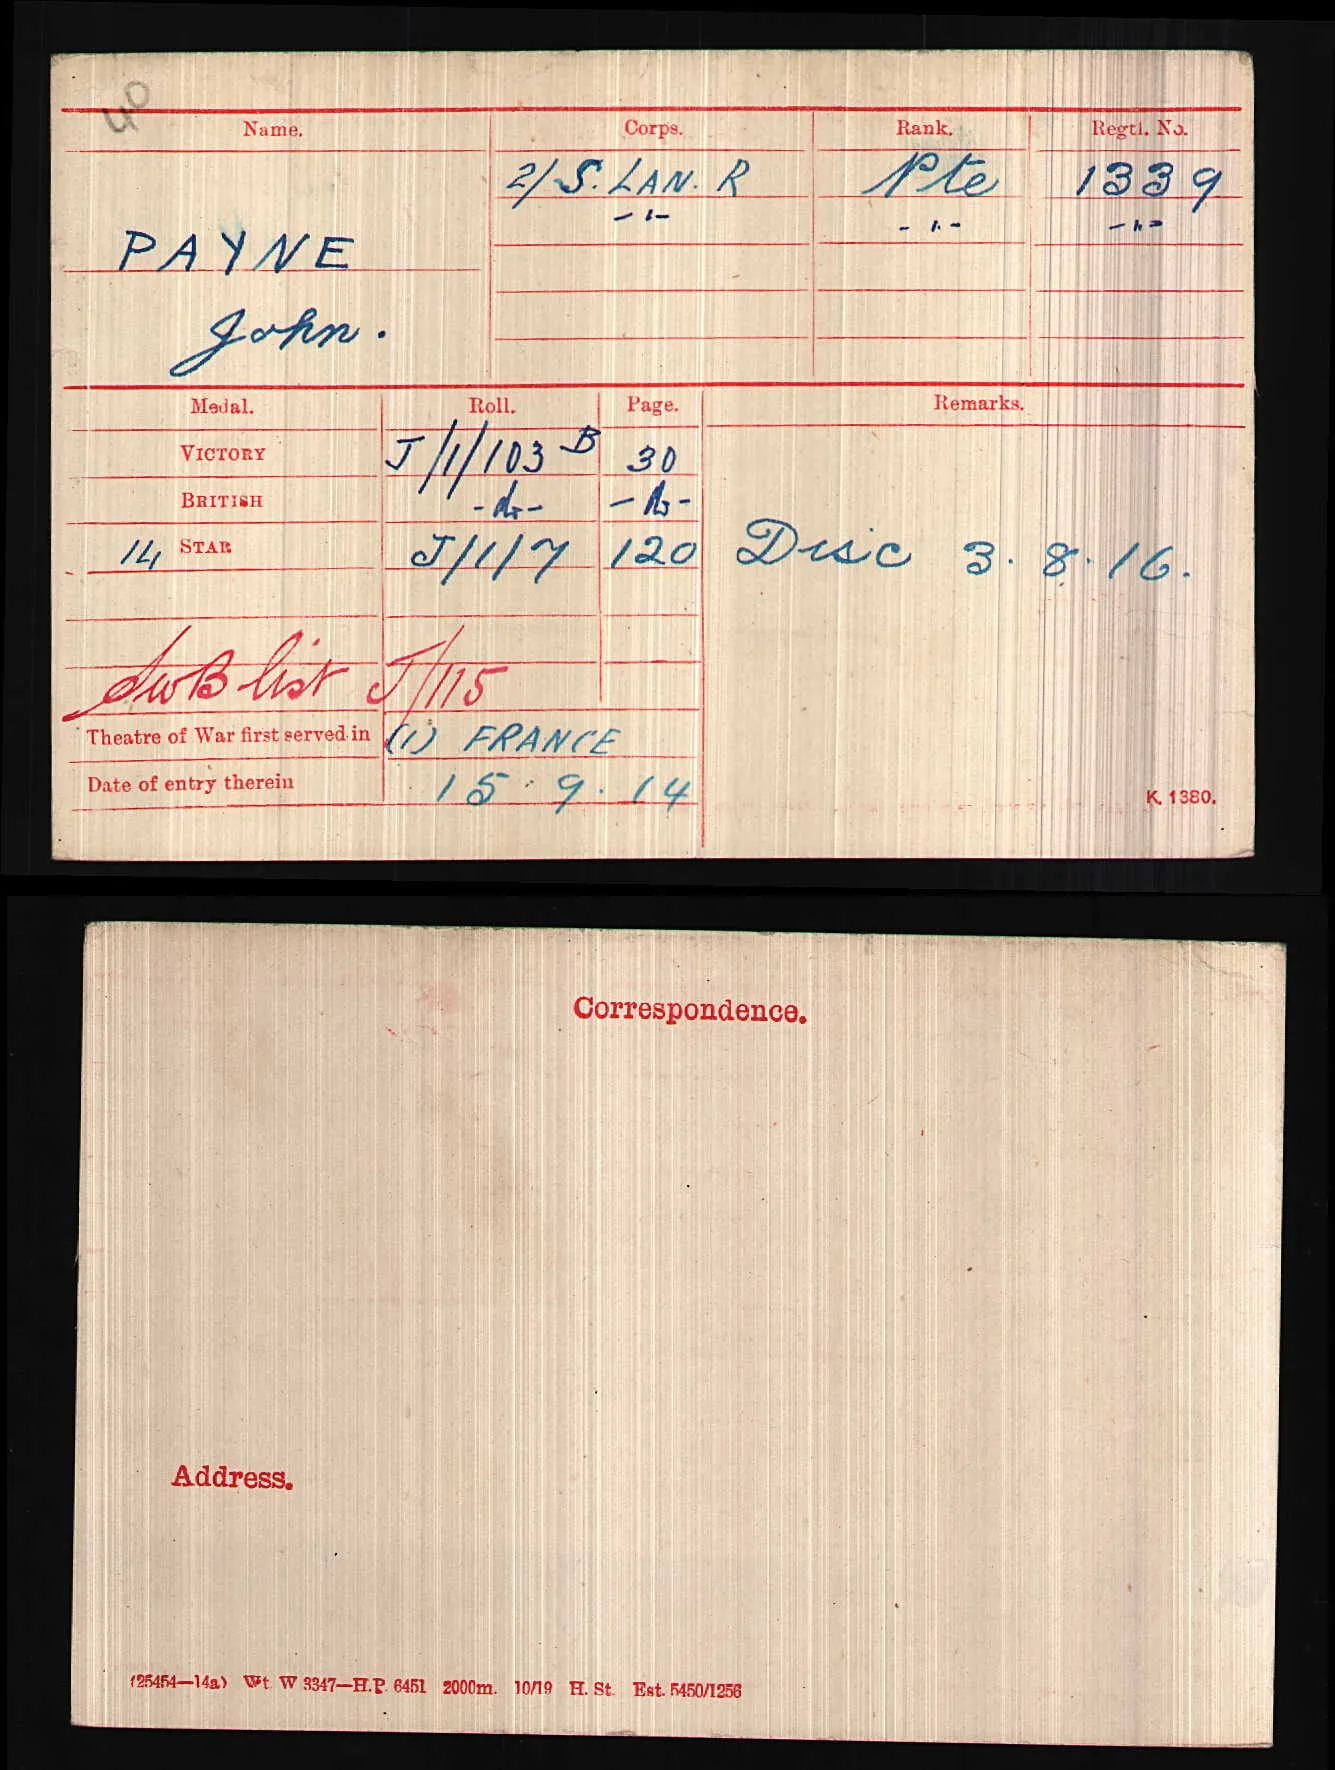 40
Name. Corps. Rank. Regtl. No.
2/S. LAN. R Pte 1339
-"- -"- -"-
PAYNE
John.
Medal. Roll. Page. Remarks.
VICTORY J/1/103 B 30
BRITISH -do- -do-
14 STAR J/1/7 120 Disc 3.8.16.
SWB list J/115
Theatre of War first served in (1) FRANCE
Date of entry therein 15.9.14
K. 1380.
Correspondence.
Address.
(25454—14a) Wt. W 3347—H.P. 6451 2000m. 10/19 H. St. Est. 5450/1256